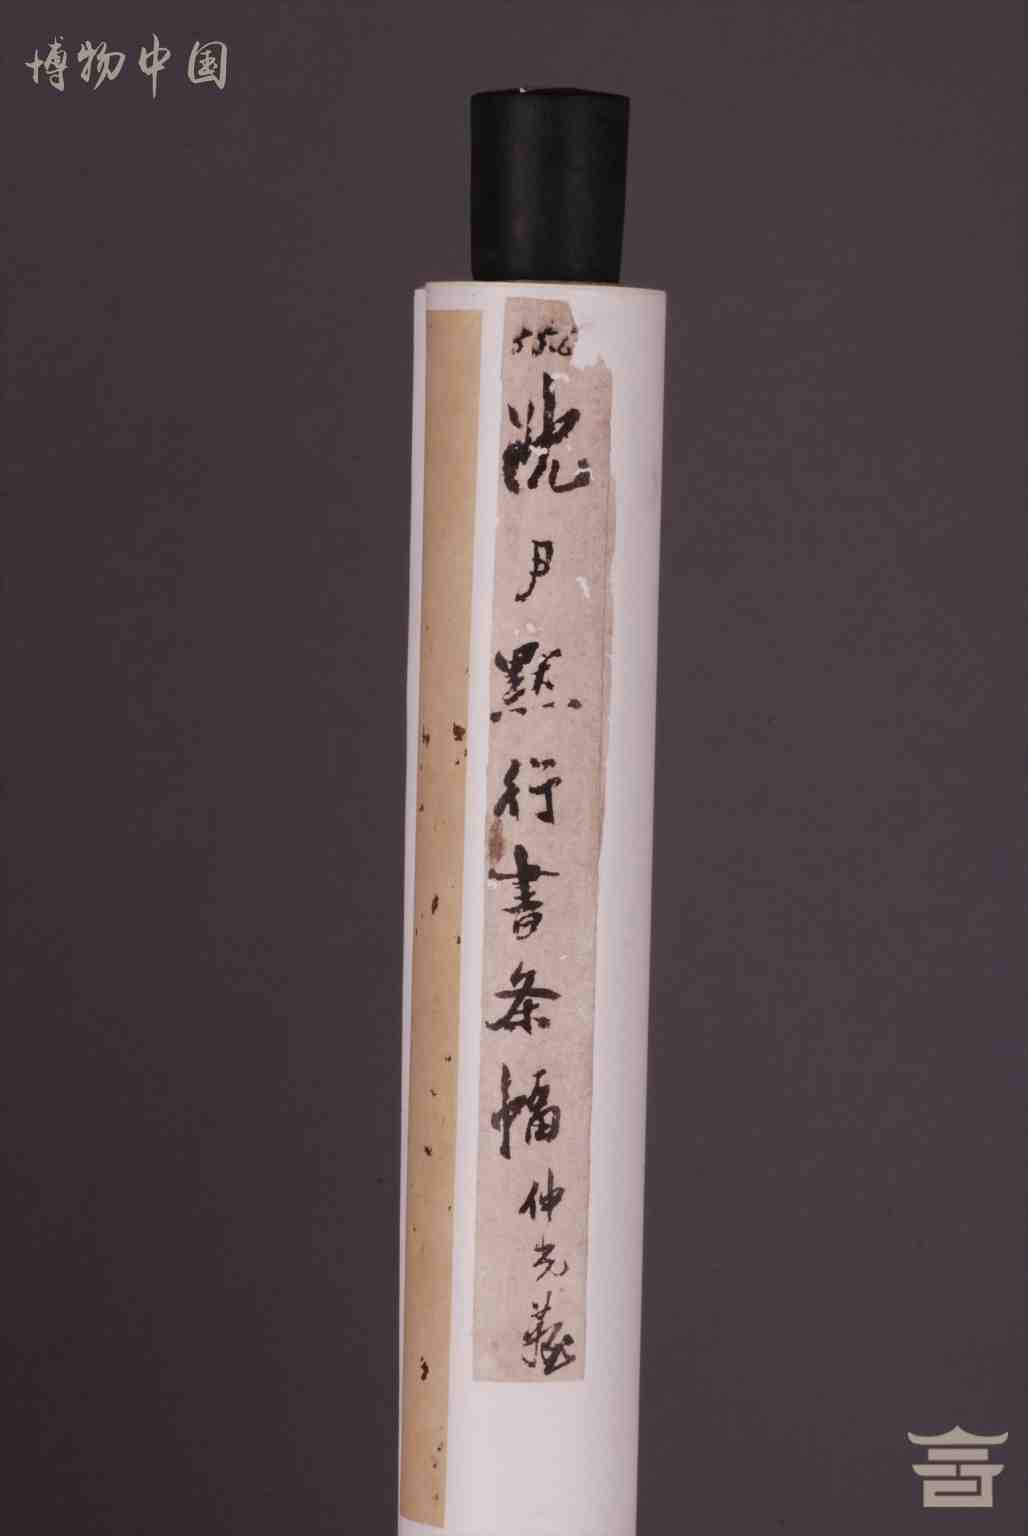 博物中国
556
沈尹默行書条幅 仲光藏